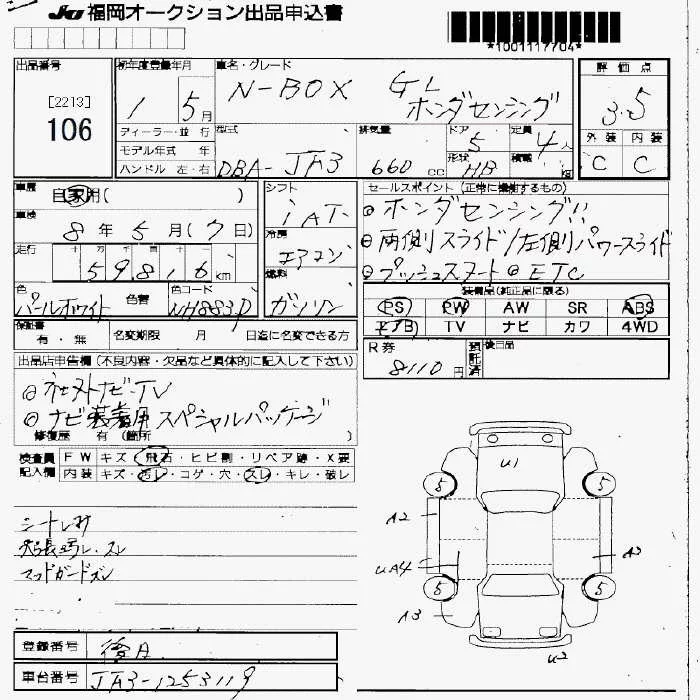 JU 福岡オークション出品申込書
*1001117704*
出品番号
[2213]
106
初年度登録年月
1 5月
車名・グレード
N-BOX GL
ホンダセンシング
評価点
3.5
外装 内装
C C
ディーラー・並行
モデル年式 年
ハンドル 左・右
型式
DBA-JF3
排気量
660 cc
ドア
5
形状
HB
定員
4人
積載
kg
車歴
自家用( )
車検
8年5月(7日)
走行
十 万 千 百 十
59816 km
色
パールホワイト
色替
色コード
NH883P
シフト
iAT
冷房
エアコン
燃料
ガソリン
セールスポイント(正常に機能するもの)
◎ホンダセンシング!!
◎両側スライド/左側パワースライド
◎プッシュスタート◎ETC
装備品(純正品に限る)
PS PW AW SR ABS
エアB TV ナビ カワ 4WD
保証書
有・無
名変期限 月 日迄に名変できる方
R券
8110円
預託済
後日品
出品店申告欄(不良内容・欠品など具体的に記入して下さい)
◎社外ナビ・TV
◎ナビ装着用スペシャルパッケージ
修復歴 有(箇所 )
検査員
記入欄
FW キズ・飛石・ヒビ割・リペア跡・X要
内装 キズ・汚レ・コゲ・穴・スレ・キレ・破レ
マッドガードズレ
U1
5 5
A2
UA4
A3
5 5
A3
U2
登録番号
後日
車台番号
JF3-1253119